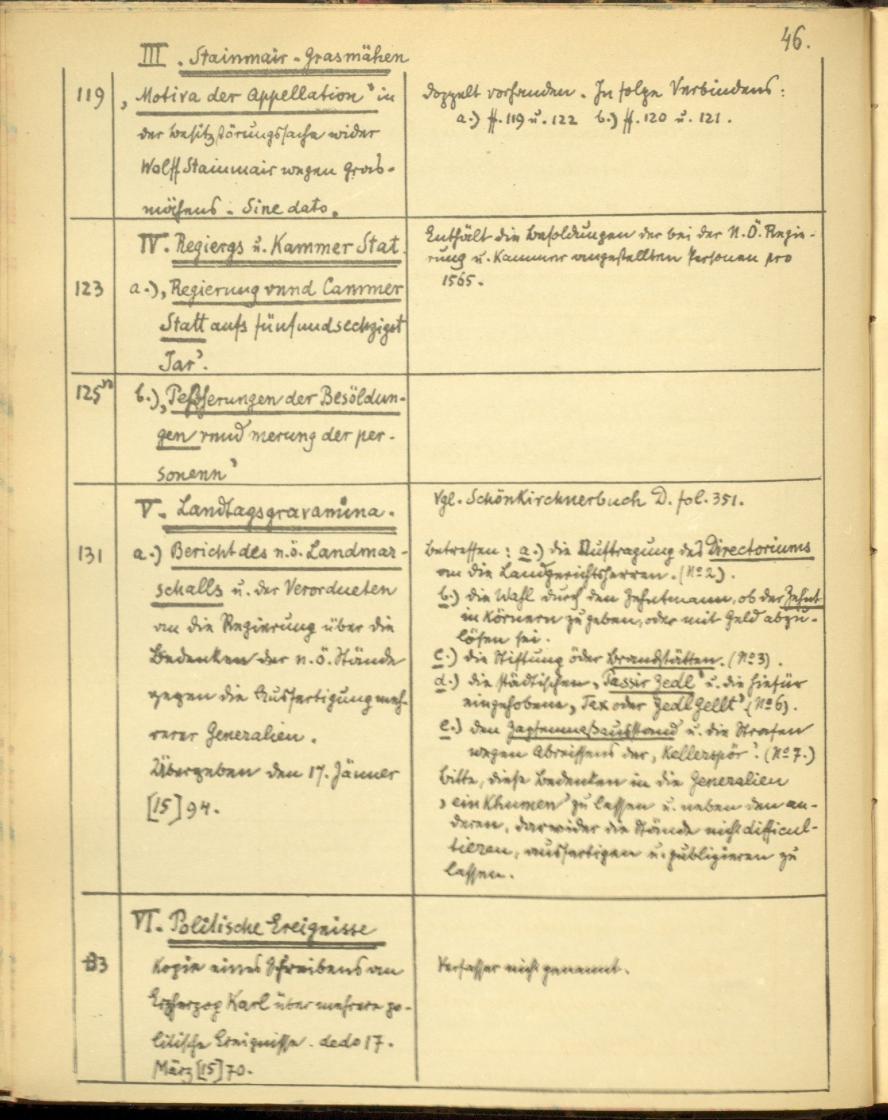 46.
III. Stainmair-Grasmähen
119 „Motiva der Appellation“ in
der Besitzstörungssache wider
Wolff Stainmair wegen Gras-
mähens. Sine dato.
Doppelt vorhanden. Infolge Verbindens:
a.) ff. 119 u. 122 b.) ff. 120 u. 121.
IV. Regiergs u. Kammer Stat.
123 a.) „Regierung vnnd Cammer
Statt aufs fünfundsechzigst
Jar“.
Enthält die Besoldungen der bei der N.Ö. Regie-
rung u. Kammer angestellten Personen pro
1565.
b.) „Pesserungen der Besöldun-
gen vnnd merung der per-
sonenn“
V. Landtagsgravamina.
Vgl. Schönkirchnerbuch D. fol. 351.
131 a.) Bericht des n.ö. Landmar-
schalls u. der Verordneten
an die Regierung über die
Bedenken der n.ö. Stände
gegen die Ausfertigung meh-
rerer Generalien.
Übergeben den 17. Jänner
[15]94.
Betreffen: a.) die Auftragung des Directoriums
an die Landgerichtsherren. (No 2).
b.) die Wahl durch den Zehntmann, ob der Zehnt
in Körnern zu geben, oder mit Geld abzu-
lösen sei.
c.) die Stiftung öder Brandstätten. (No 3).
d.) die städtischen „Passir Zedl“ u. die hiefür
eingehobene „Tax oder Zedl Gellt“. (No 6).
e.) den u. die Strafen
wegen Abreissens der „Kellerspör“. (No 7.)
Bitte, diese Bedenken in die Generalien
„ein Khumen“ zu lassen u. neben den an-
deren, darwider die Stände nicht difficul-
tieren, ausfertigen u. publizieren zu
lassen.
VI. Politische Ereignisse
Kopie eines Schreibens an
Erzherzog Karl über mehrere po-
litische Ereignisse. dedo 17.
März [15]70.
Verfasser nicht genannt.